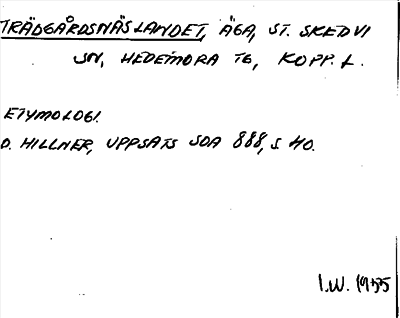 TRÄDGÅRDSNÄSLANDET, ÄGA, ST. SKEDVI
SN, HEDEMORA TG, KOPP. L.
ETYMOLOGI.
D. HILLNER, UPPSATS SOA 888, S 40.
I.W. 1975